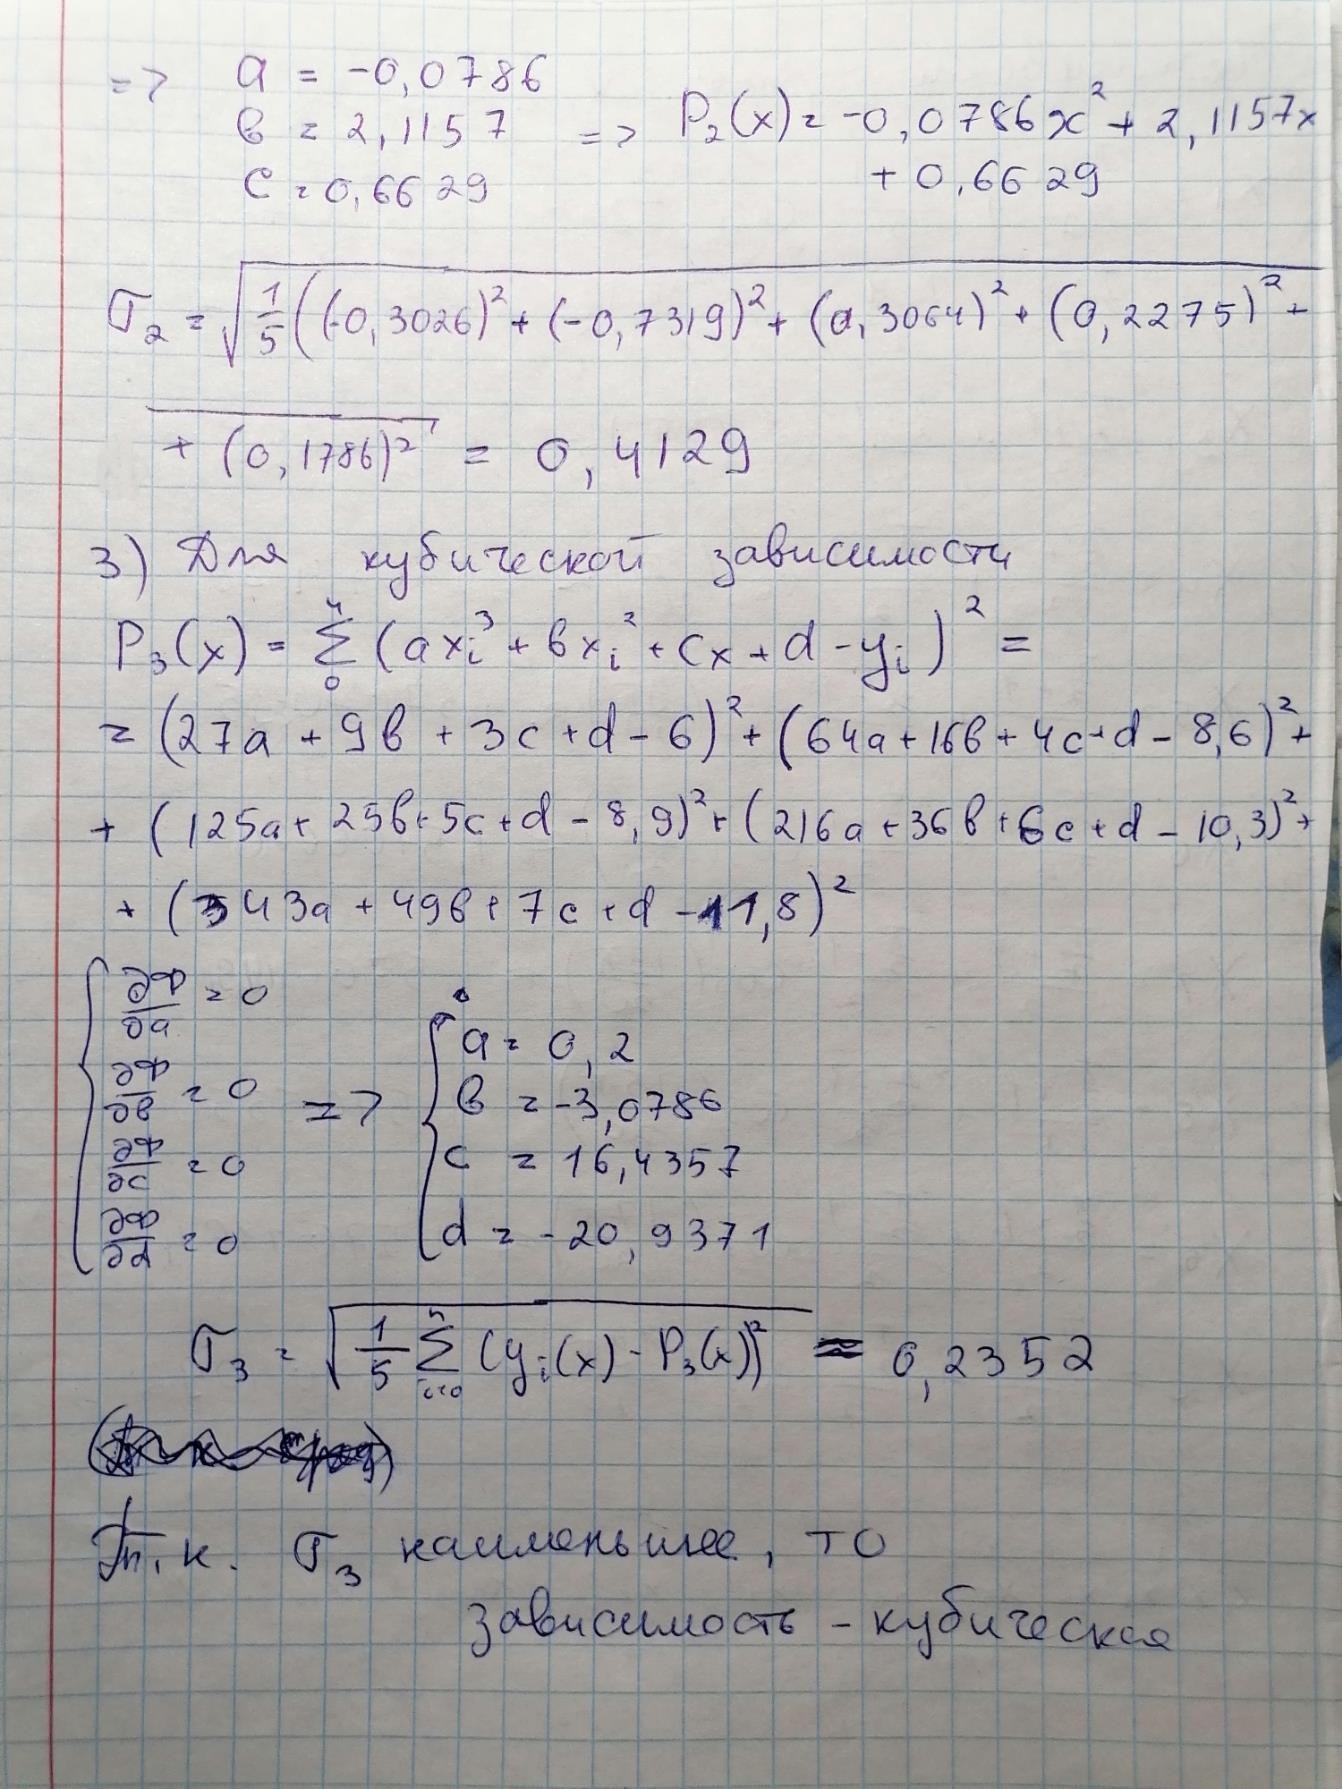 => a = -0,0786
в = 2,1157 => P₂(x) = -0,0786x² + 2,1157x
c = 0,6629 + 0,6629
σ₂ = √(1/5((-0,3026)² + (-0,7319)² + (0,3064)² + (0,2275)² +
+ (0,1786)²) = 0,4129
3) Для кубической зависимости
P₃(x) = Σ₀⁴ (axᵢ³ + вxᵢ² + cx + d - yᵢ)² =
= (27a + 9в + 3c + d - 6)² + (64a + 16в + 4c + d - 8,6)² +
+ (125a + 25в + 5c + d - 8,9)² + (216a + 36в + 6c + d - 10,3)² +
+ (343a + 49в + 7c + d - 11,8)²
∂Φ/∂a = 0
∂Φ/∂в = 0
∂Φ/∂c = 0
∂Φ/∂d = 0
=>
a = 0,2
в = -3,0786
c = 16,4357
d = -20,9371
σ₃ = √(1/5 Σᵢ₌₀ⁿ (yᵢ(x) - P₃(x))²) = 0,2352
Т.к. σ₃ наименьшее, то
зависимость - кубическая